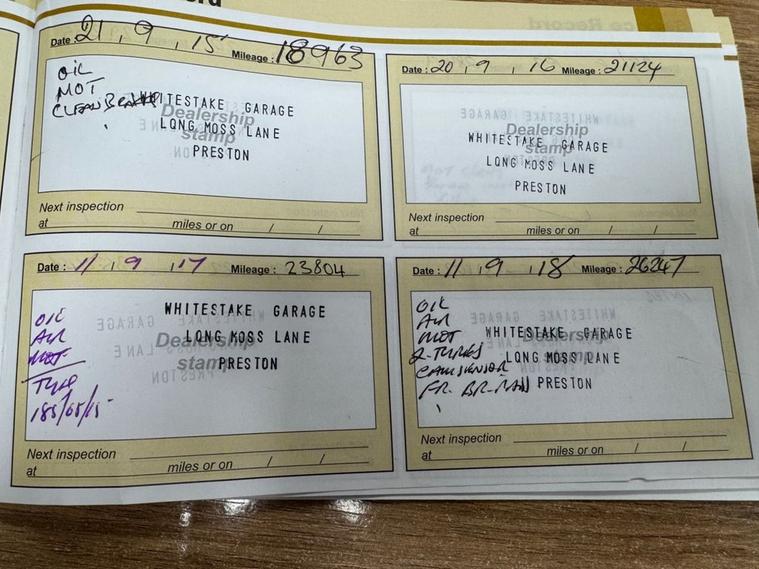 Date : 21 , 9 , 15 Mileage : 18963
OIL
MOT
CLEAN BRAKES
WHITESTAKE GARAGE
Dealership
LONG MOSS LANE
stamp
PRESTON
Next inspection
at miles or on / /
Date : 20 , 9 , 16 Mileage : 21124
Dealership
WHITESTAKE GARAGE
stamp
LONG MOSS LANE
PRESTON
Next inspection
at miles or on / /
Date : 11 , 9 , 17 Mileage : 23804
WHITESTAKE GARAGE
OIL
AIR
LONG MOSS LANE
Dealership
MOT
stamp
PRESTON
TYRE
185/65/15
Next inspection
at miles or on / /
Date : 11 , 9 , 18 Mileage : 26247
OIL
AIR
MOT
WHITESTAKE GARAGE
Dealership
2-TYRES
LONG MOSS LANE
stamp
CAM SENSOR
FR. BR-PADS
PRESTON
Next inspection
at miles or on / /